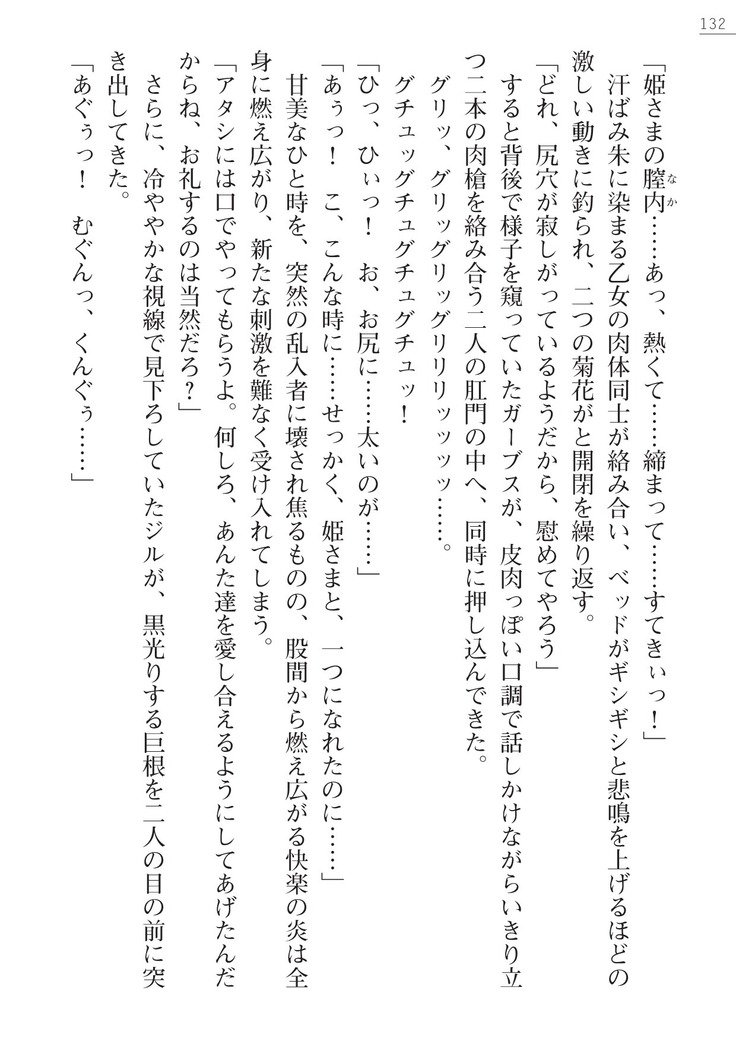 132
「姫さまの膣内……あっ、熱くて……締まって……すてきぃっ！」
なか
　汗ばみ朱に染まる乙女の肉体同士が絡み合い、ベッドがギシギシと悲鳴を上げるほどの
激しい動きに釣られ、二つの菊花がと開閉を繰り返す。
「どれ、尻穴が寂しがっているようだから、慰めてやろう」
　すると背後で様子を窺っていたガーブスが、皮肉っぽい口調で話しかけながらいきり立
つ二本の肉槍を絡み合う二人の肛門の中へ、同時に押し込んできた。
　グリッ、グリッグリッグリリリッッッッ……。
　グチュッグチュグチュグチュッ！
「ひっ、ひぃっ！　お、お尻に……太いのが……」
「あぅっ！　こ、こんな時に……せっかく、姫さまと、一つになれたのに……」
　甘美なひと時を、突然の乱入者に壊され焦るものの、股間から燃え広がる快楽の炎は全
身に燃え広がり、新たな刺激を難なく受け入れてしまう。
「アタシには口でやってもらうよ。何しろ、あんた達を愛し合えるようにしてあげたんだ
からね、お礼するのは当然だろ？」
　さらに、冷ややかな視線で見下ろしていたジルが、黒光りする巨根を二人の目の前に突
き出してきた。
「あぐぅっ！　むぐんっ、くんぐぅ……」